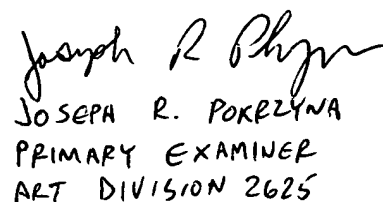 Joseph R Pokrzyna
JOSEPH R. POKRZYNA
PRIMARY EXAMINER
ART DIVISION 2625